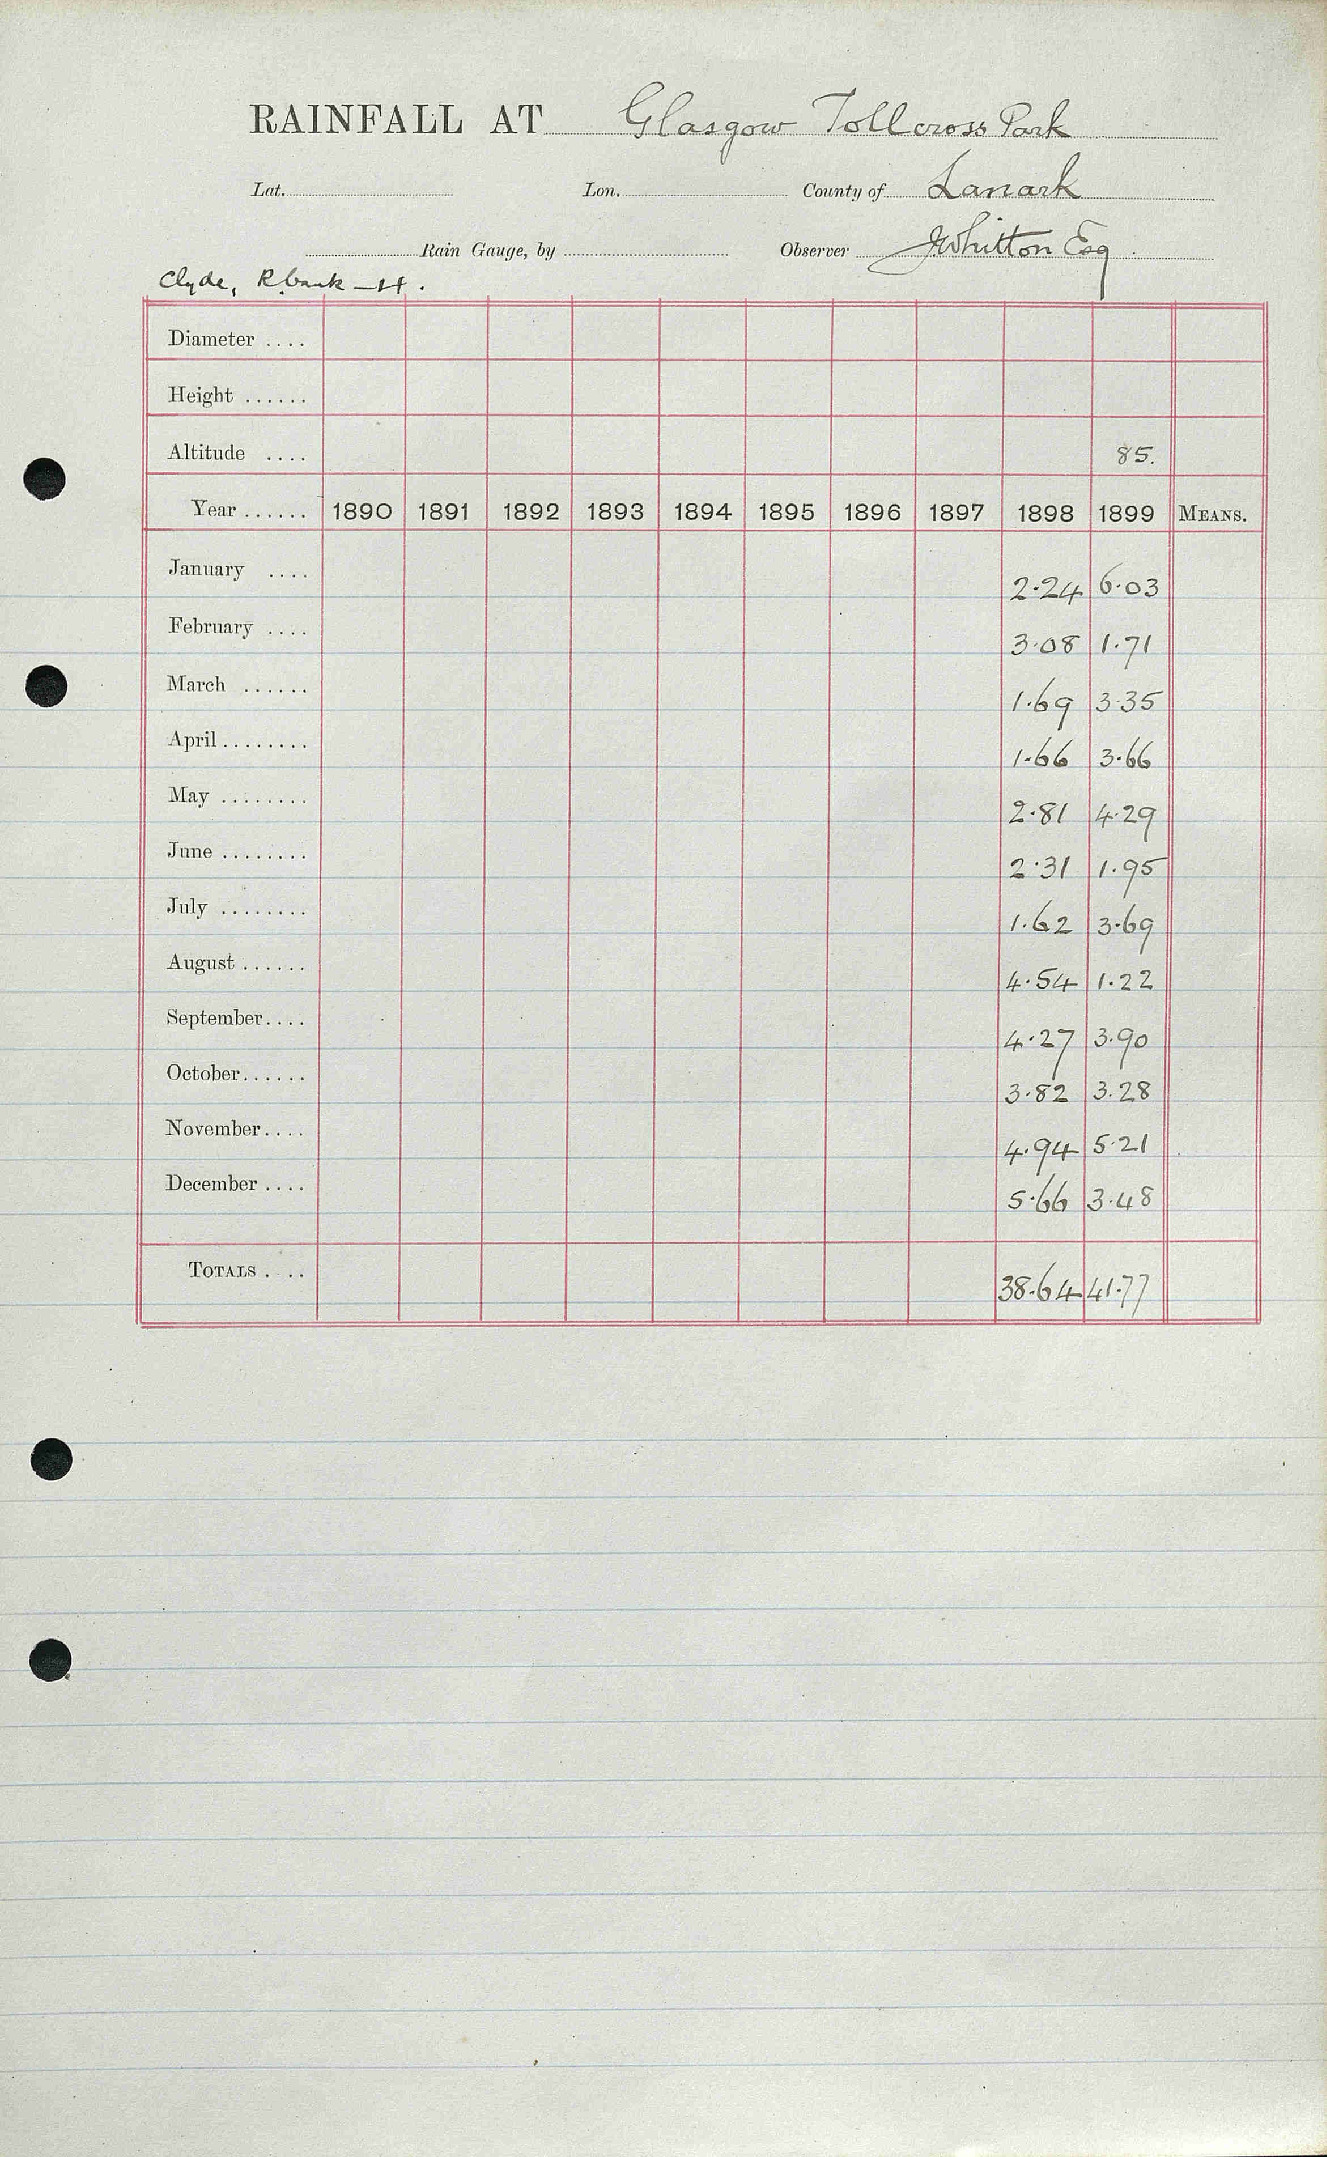 RAINFALL AT Glasgow Tollcross Park
Lat. Lon. County of Lanark
Rain Gauge, by Observer J Whitton Esq
Clyde, R. bank - H.
Diameter ....
Height ......
Altitude .... 85.
Year ...... 1890 1891 1892 1893 1894 1895 1896 1897 1898 1899 MEANS.
January .... 2.24 6.03
February .... 3.08 1.71
March ...... 1.69 3.35
April ........ 1.66 3.66
May ........ 2.81 4.29
June ........ 2.31 1.95
July ........ 1.62 3.69
August ...... 4.54 1.22
September .... 4.27 3.90
October ...... 3.82 3.28
November .... 4.94 5.21
December .... 5.66 3.48
TOTALS . .. 38.64 41.77